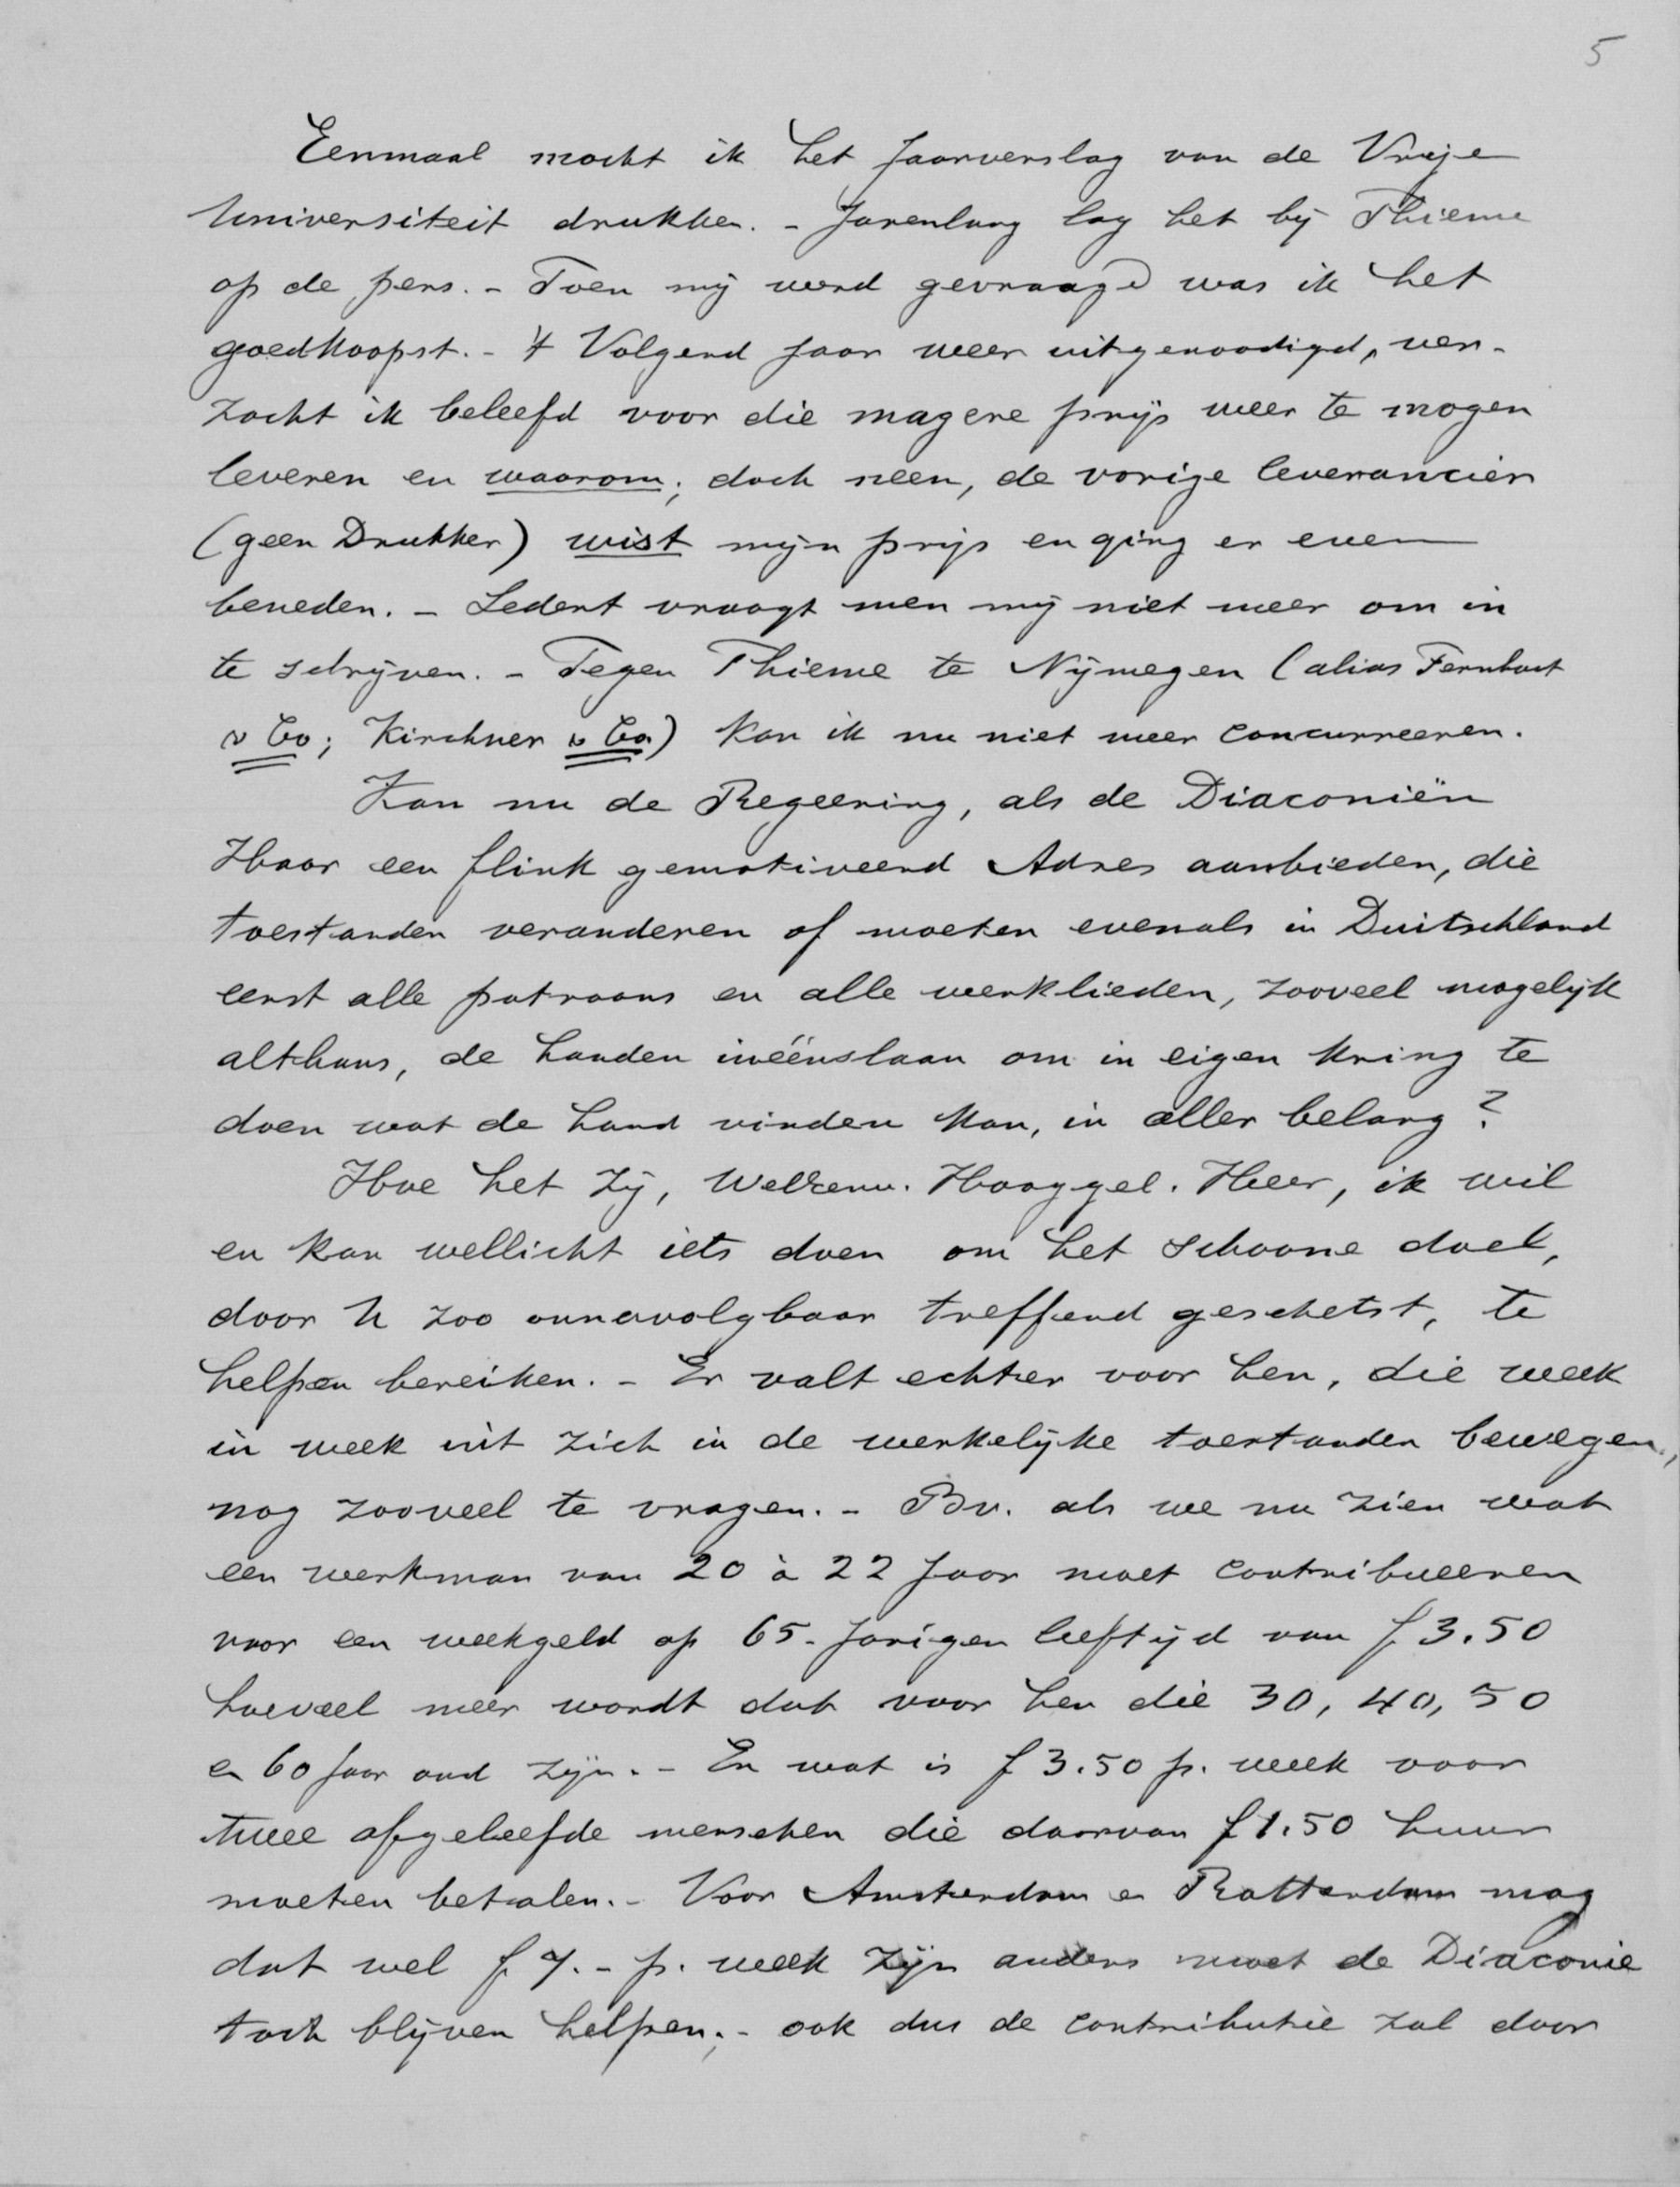 5
Eenmaal mocht ik het Jaarverslag van de Vrije
Universiteit drukken. - Jarenlang lag het bij Thieme
op de pers. - Toen mij werd gevraagd was ik het
goedkoopst. - 't Volgend jaar weer uitgenoodigd, ver-
zocht ik beleefd voor die magere prijs weer te mogen
leveren en waarom; doch neen, de vorige leverancier
(geen Drukker) wist mijn prijs en ging er even
beneden. - Sedert vraagt men mij niet meer om in
te schrijven. - Tegen Thieme te Nijmegen (alias Fernhout
& Co; Kirchner & Co.) kan ik nu niet meer concurreeren.
Kan nu de Regeering, als de Diaconiën
Haar een flink gemotiveerd Adres aanbieden, die
toestanden veranderen of moeten evenals in Duitschland
eerst alle patroons en alle werklieden, zooveel mogelijk
althans, de handen inéénslaan om in eigen kring te
doen wat de hand vinden kan, in aller belang?
Hoe het zij, WelEerw. Hooggel. Heer, ik wil
en kan wellicht iets doen om het schoone doel,
door U zoo onnavolgbaar treffend geschetst, te
helpen bereiken. - Er valt echter voor hen, die week
in week uit zich in de werkelijke toestanden bewegen,
nog zooveel te vragen. - Bv. als we nu zien wat
een werkman van 20 à 22 jaar moet contribueeren
voor een weekgeld op 65-jarigen leeftijd van f 3.50
hoeveel meer wordt dat voor hen die 30, 40, 50
en 60 jaar oud zijn. - En wat is f 3.50 p. week voor
twee afgeleefde menschen die daarvan f 1.50 huur
moeten betalen. - Voor Amsterdam en Rotterdam mag
dat wel f 7.- p. week zijn anders moet de Diaconie
toch blijven helpen; - ook dus de contributie zal door